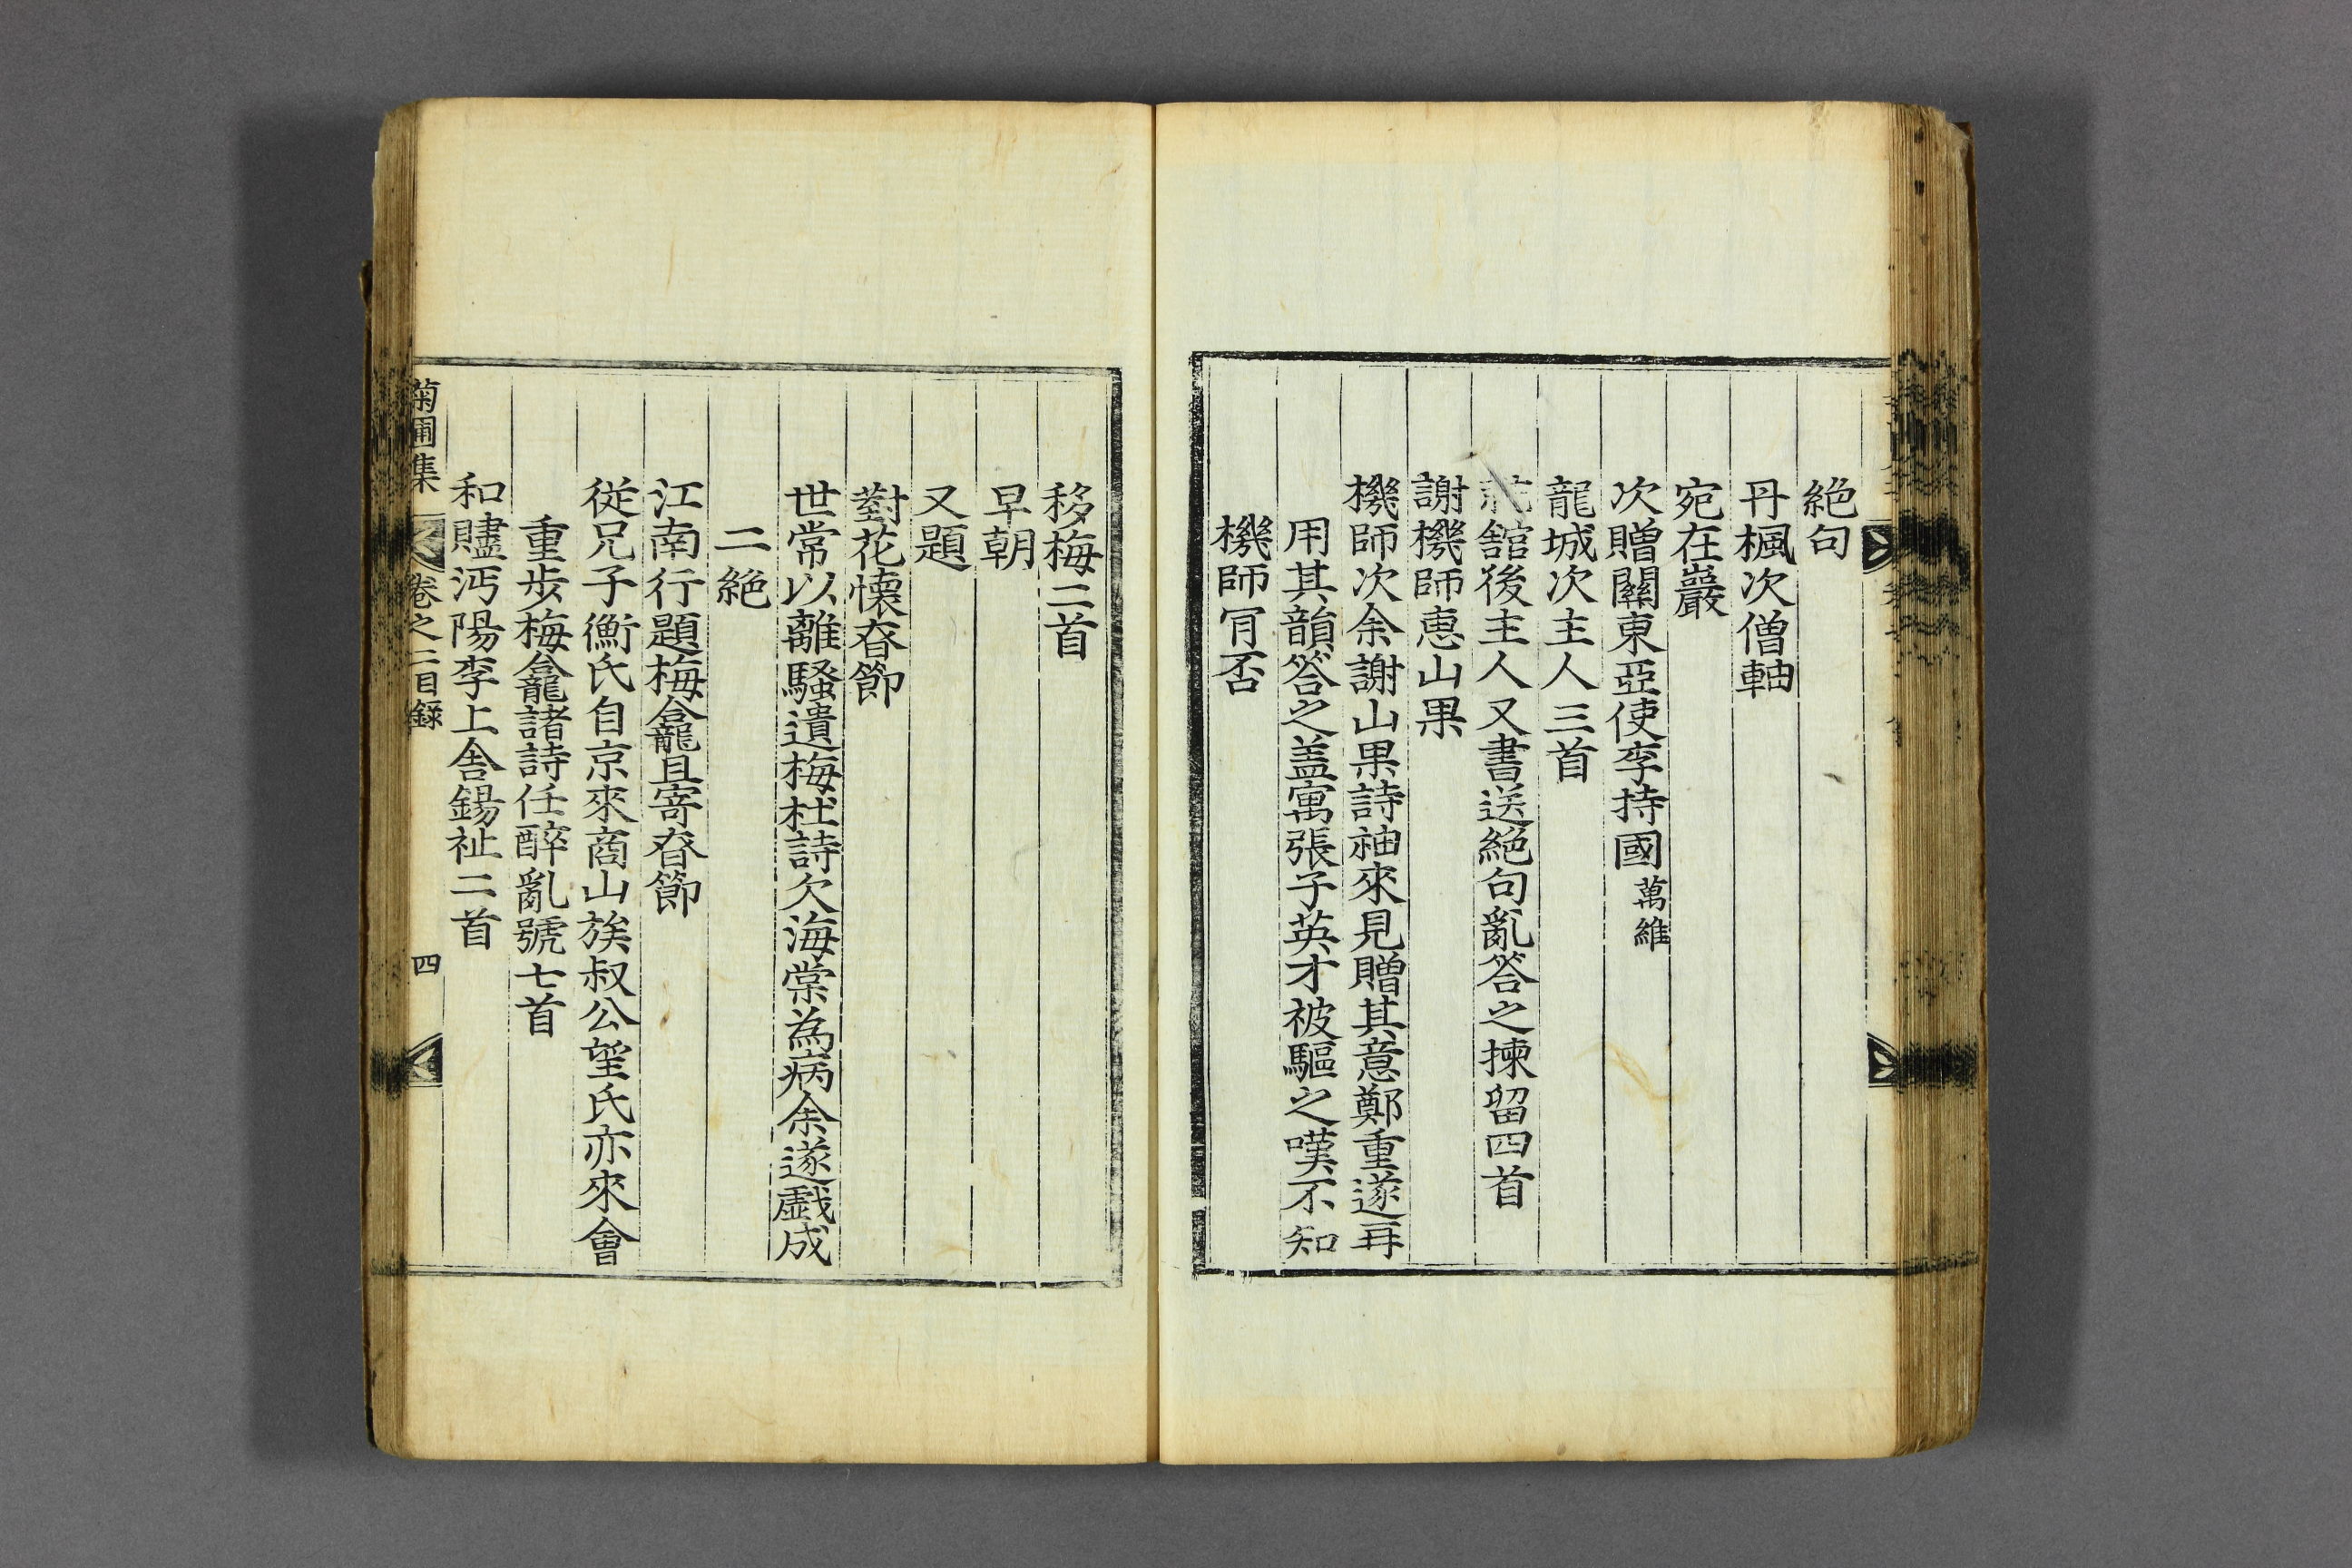 絶句
丹楓次僧軸
宛在巖
次贈關東亞使李持國萬維
龍城次主人三首
舘後主人又書送絶句亂答之揀留四首
謝機師惠山果
機師次余謝山果詩袖來見贈其意鄭重遂再
用其韻答之盖寓張子英才被驅之嘆不知
機師肎否
移梅二首
早朝
又題
對花懷春節
世常以離騷遺梅杜詩欠海棠為病余遂戱成
二絶
江南行題梅龕且寄春節
從兄子衡氏自京來商山族叔公望氏亦來會
重步梅龕諸詩任醉亂號七首
和贐沔陽李上舍錫祉二首
菊圃集 卷之二目錄 四